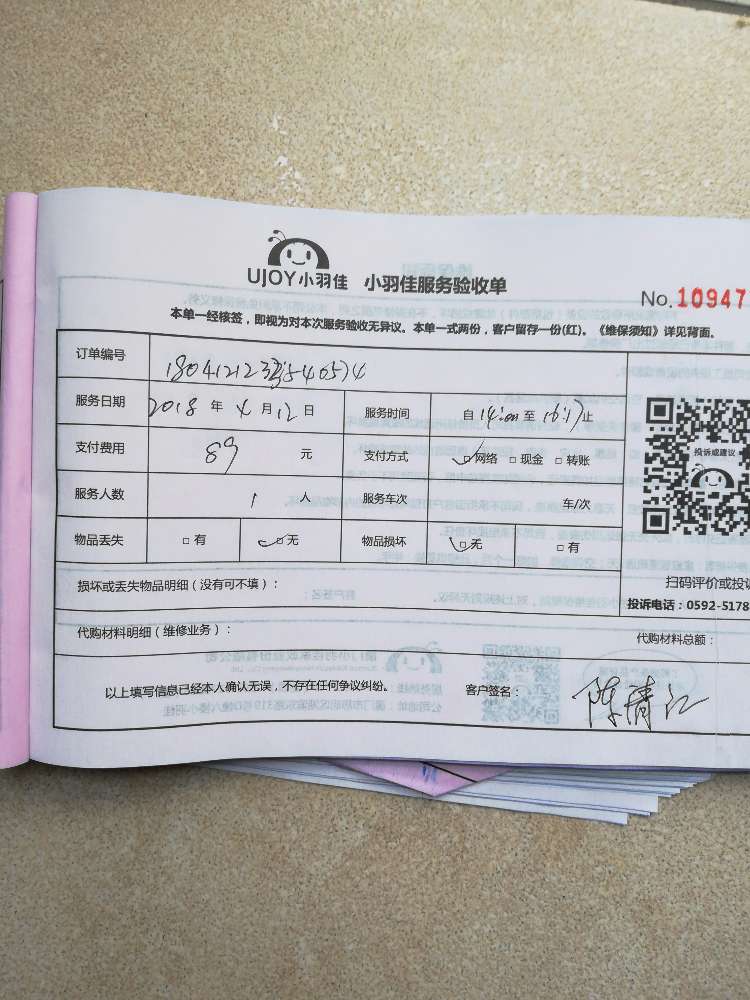 UJOY小羽佳 小羽佳服务验收单
No.10947
本单一经核签，即视为对本次服务验收无异议。本单一式两份，客户留存一份(红)。《维保须知》详见背面。
订单编号
服务日期 2018 年 4 月 12 日 服务时间 自 14:00 至 16:17 止
支付费用 89 元 支付方式 网络 □ 现金 □ 转账
服务人数 1 人 服务车次 车/次
物品丢失 □ 有 □ 无 物品损坏 □ 无 □ 有
投诉或建议
扫码评价或投诉
投诉电话：0592-5178
损坏或丢失物品明细（没有可不填）：
代购材料明细（维修业务）： 代购材料总额：
以上填写信息已经本人确认无误，不存在任何争议纠纷。 客户签名： 陈清江